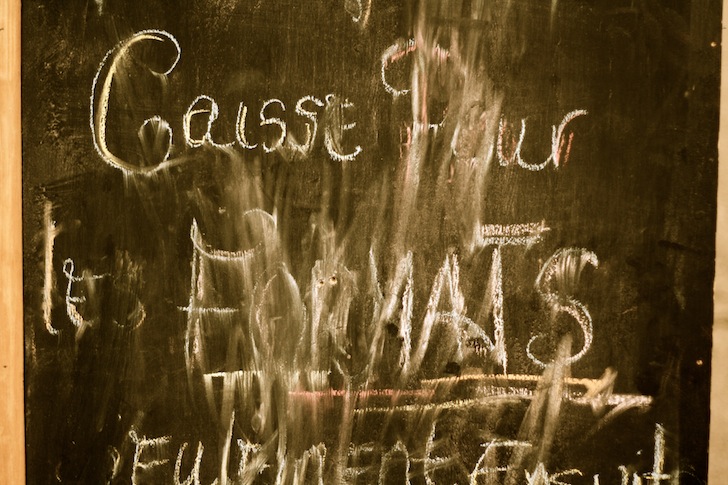 Caisse Pour
les FORMATS
seulement